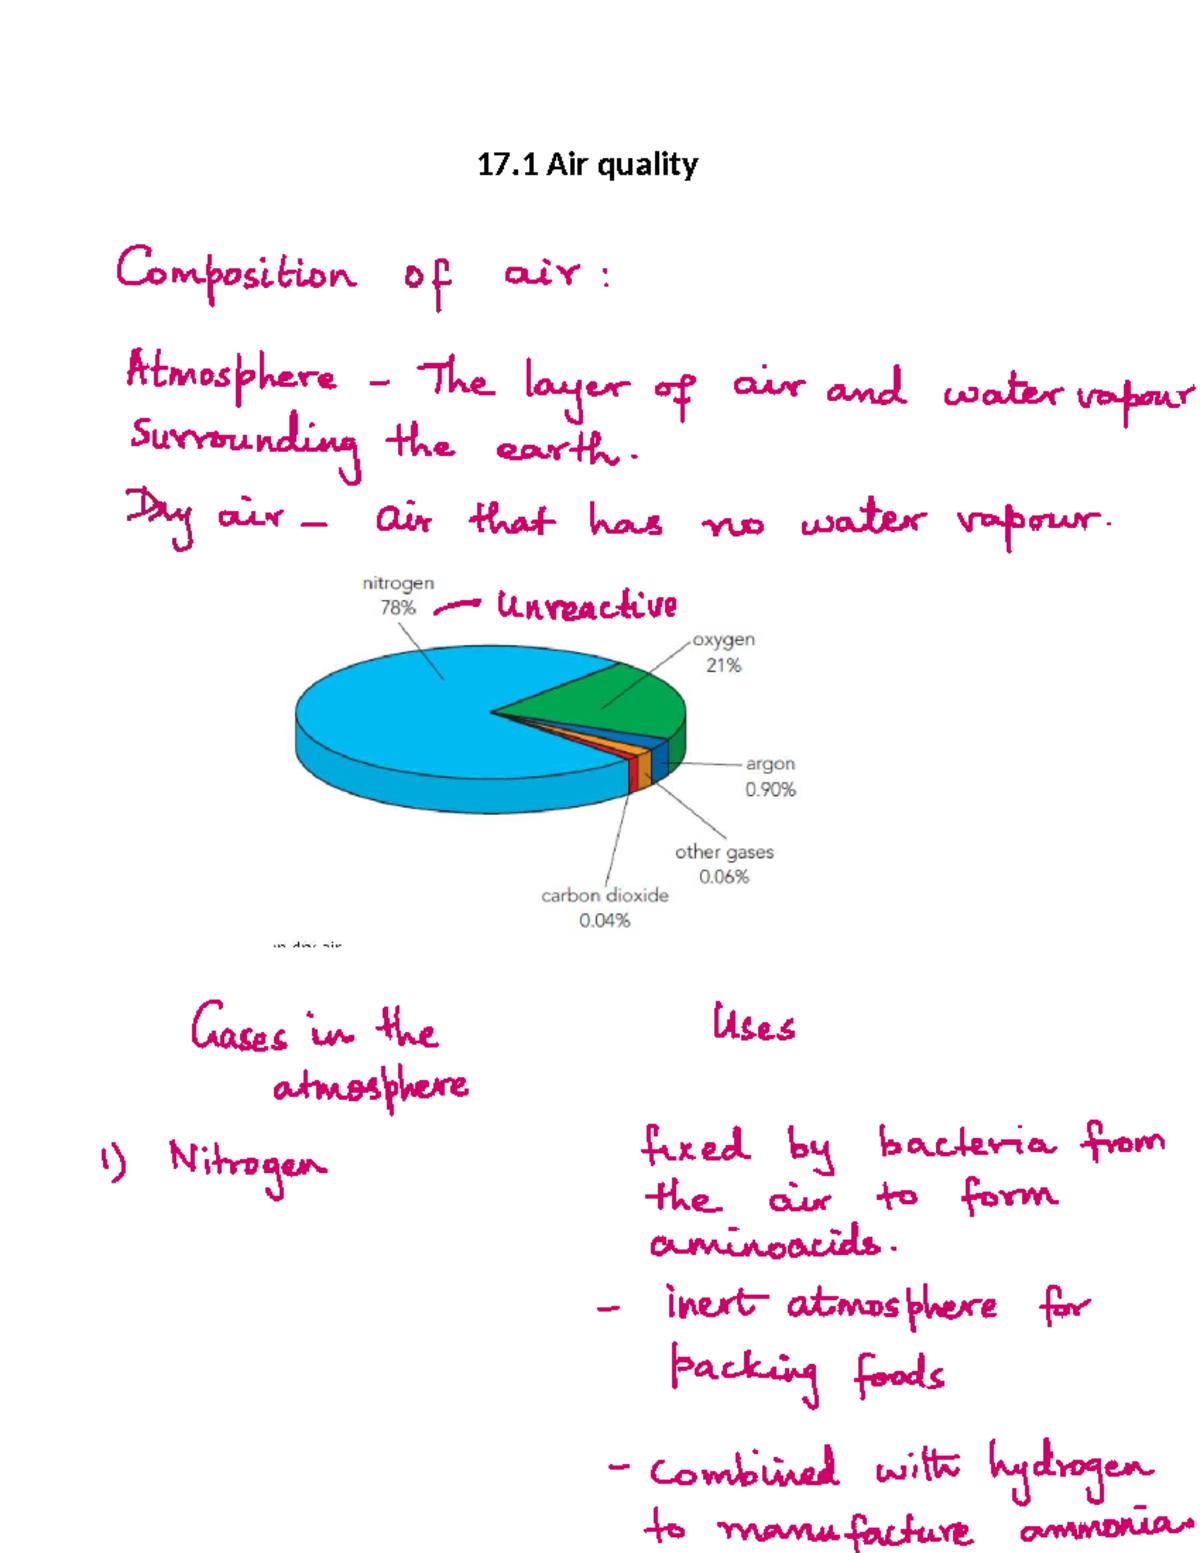 17.1 Air quality
Composition of air :
Atmosphere – The layer of air and water vapour
surrounding the earth.
Dry air – air that has no water vapour.
nitrogen
78% – Unreactive
oxygen
21%
argon
0.90%
other gases
0.06%
carbon dioxide
0.04%
in dry air
Gases in the Uses
atmosphere
1) Nitrogen fixed by bacteria from
the air to form
aminoacids.
– inert atmosphere for
packing foods
– combined with hydrogen
to manufacture ammonia.